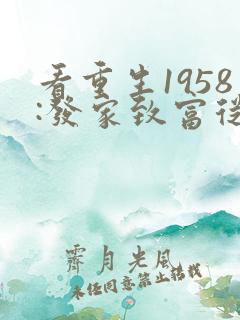 看重生1958
:發家致富從
霽月光風
未经同意禁止转载